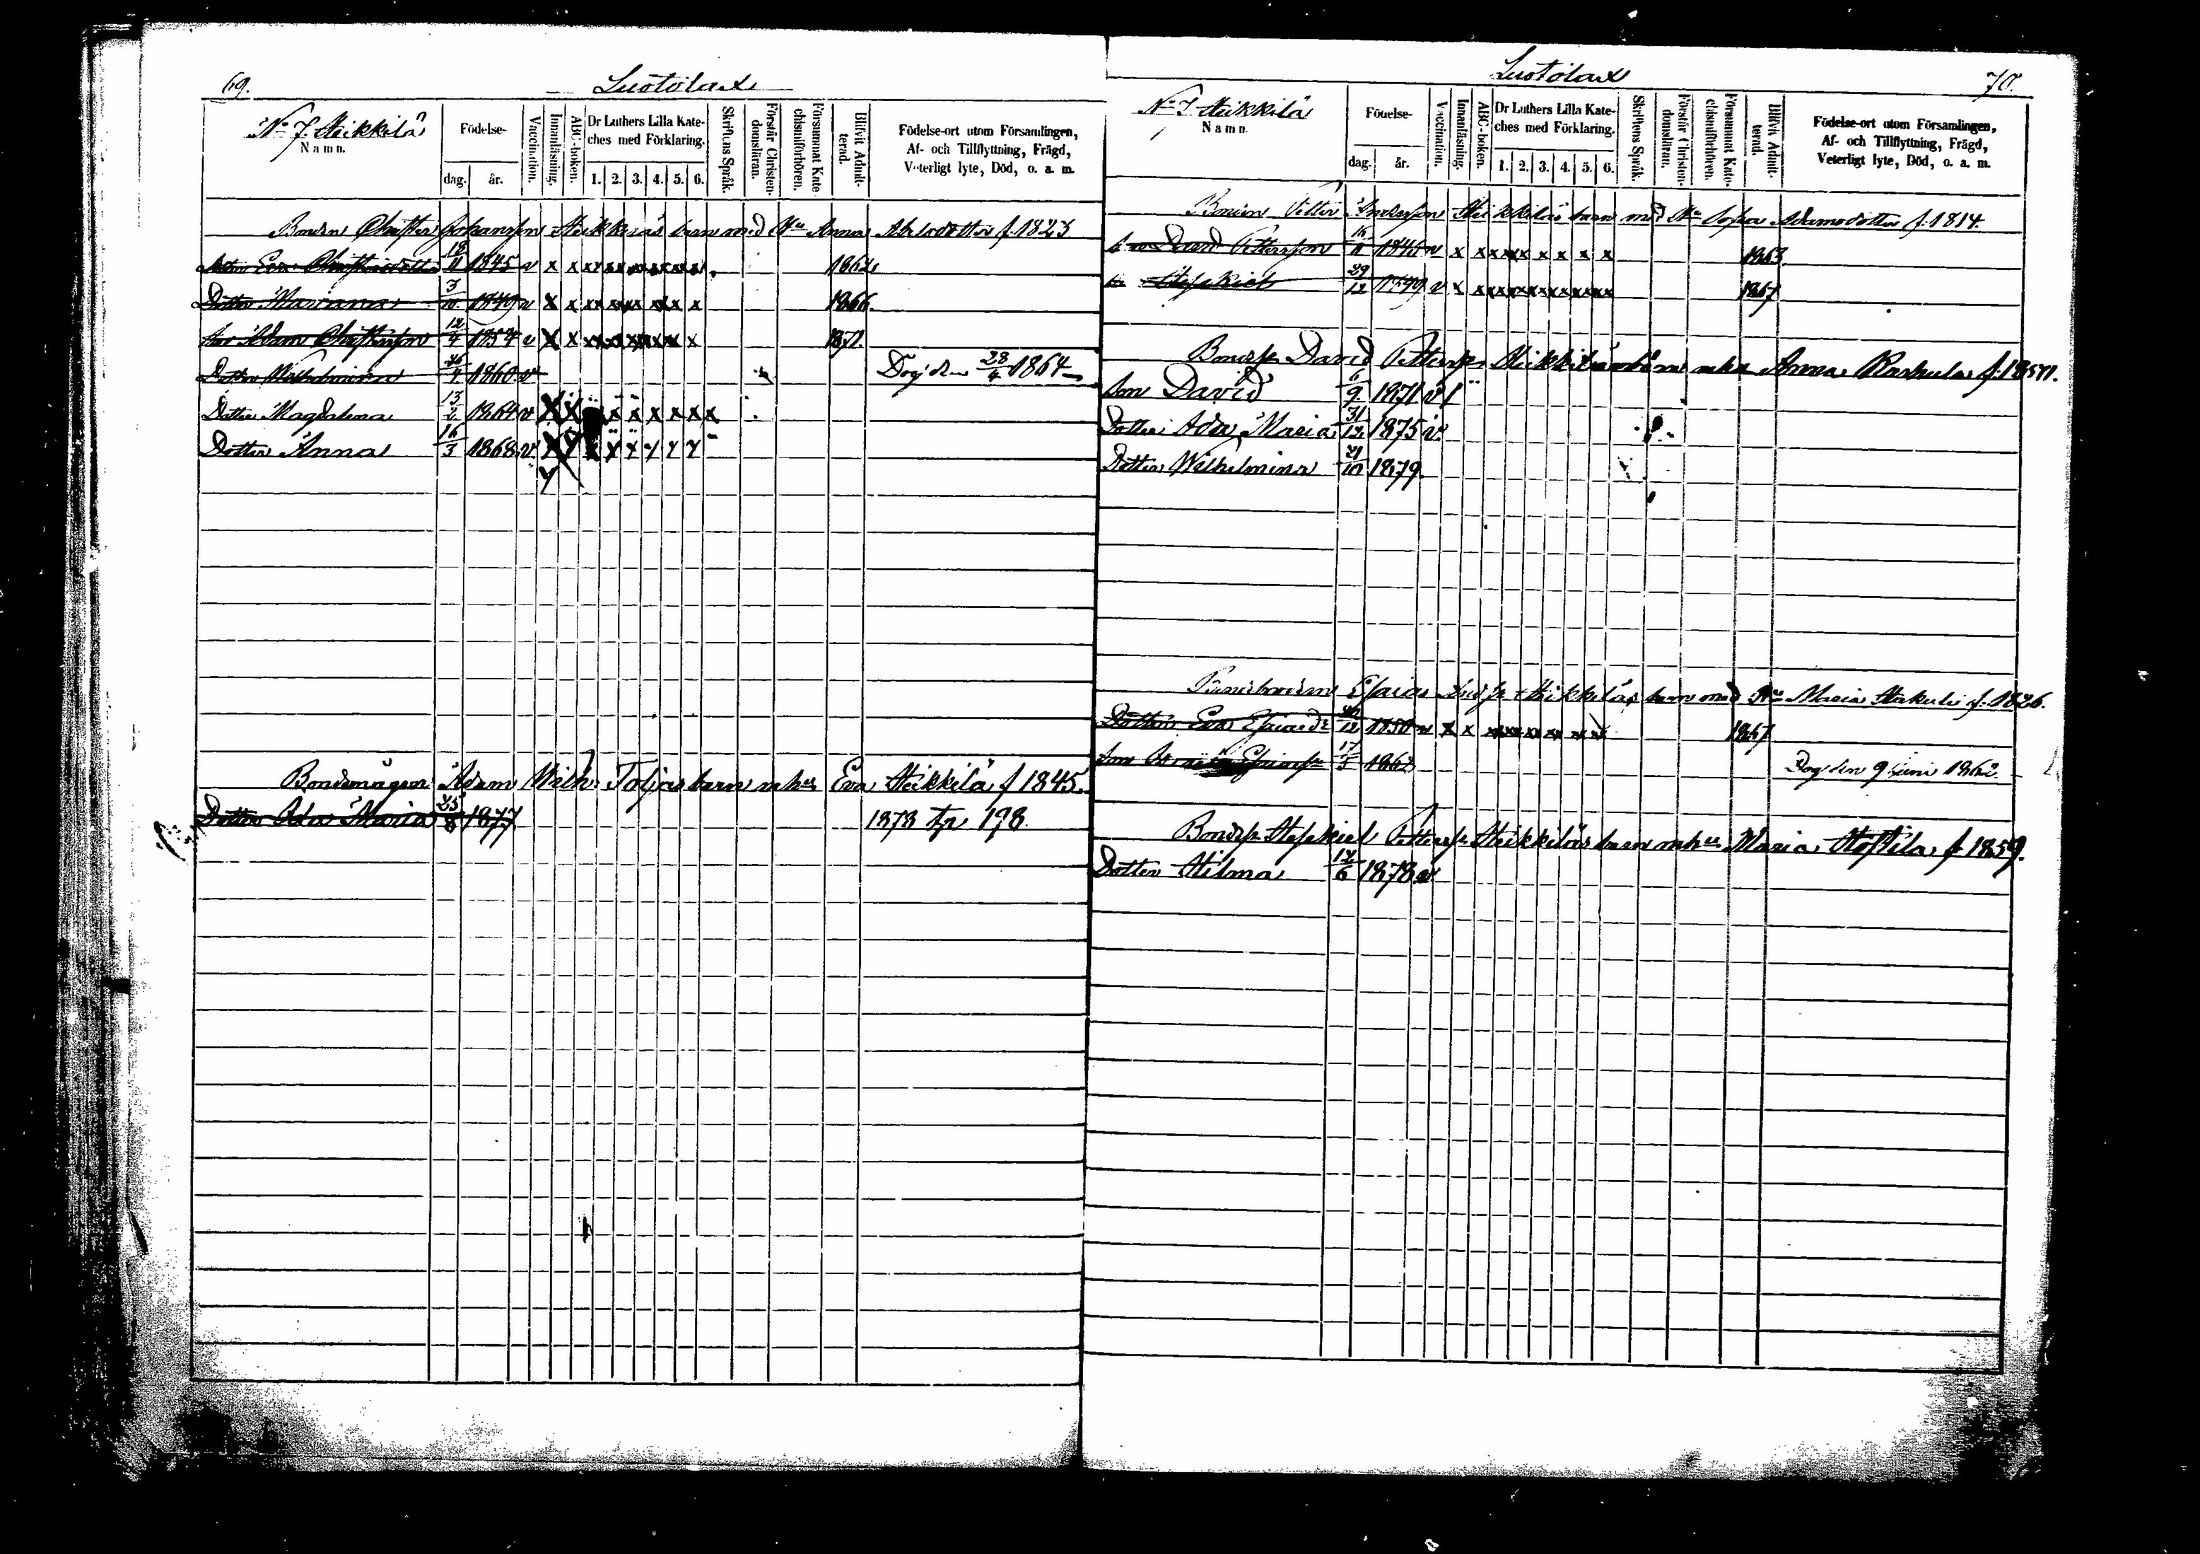 69.
Luotolax
No 7 Heikkilä
Namn.
Födelse-
dag. år.
Vaccination.
Innanläsning.
ABC-boken.
Dr Luthers Lilla Kate-
ches med Förklaring.
1. 2. 3. 4. 5. 6.
Skriftens Språk.
Förstår Christen-
domsläran.
Försummat Kate
chismiförhören.
Blifvit Admit-
terad.
Födelse-ort utom Församlingen,
Af- och Tillflyttning, Frägd,
Veterligt lyte, Död, o. a. m.
Bonden Christer Johansson Heikkiläs barn med Hu Anna Abelsdotter f. 1823
Dotter Eva Christersdotter 18/11 1845 v x x x x x x x x 1862.
Dotter Mariana 3/10 1849 v x x x x x x x x 1866.
Son Adam Christersson 12/4 1854 v x x x x x x x x 1871.
Dotter Wilhelmina 26/4 1860 v Dog den 28/4 1864
Dotter Magdalena 13/2 1864 v x x x x x x x x
Dotter Anna 16/3 1868 v x x x x x x x x
Bondemågen Adam Wilh. Toljas barn m hu Eva Heikkilä f 1845.
Dotter Ada Maria 25/8 1877 1878 Tp 198.
Luotolax
70.
No 7 Heikkilä
Namn.
Födelse-
dag. år.
Vaccination.
Innanläsning.
ABC-boken.
Dr Luthers Lilla Kate-
ches med Förklaring.
1. 2. 3. 4. 5. 6.
Skriftens Språk.
Förstår Christen-
domsläran.
Försummat Kate-
chismiförhören.
Blifvit Admit-
terad.
Födelse-ort utom Församlingen,
Af- och Tillflyttning, Frägd,
Veterligt lyte, Död, o. a. m.
Bonden Petter Andersson Heikkiläs barn med Hu Sofia Adamsdotter f. 1814.
David Pettersson 16/11 1845 v x x x x x x x x 1863.
Hesekiel 29/12 1849 v x x x x x x x x 1867
Bondes. David Petterss. Heikkiläs barn m hu Anna f. 1850.
Son David 6/9 1871 v 1
Dotter Ada Maria 31/12 1875 v.
Dotter Wilhelmina 21/10 1879.
Esaias Andss. Heikkiläs barn med Hu Maria f. 1826.
Dotter Eva Esaiasdr 20/12 1850 v x x x x x x x x 1867
Son Esaiass. 17/5 1862 Dog den 9 Juni 1862.
Bondes. Hesekiel Petterss. Heikkiläs barn m hu Maria f. 1859.
Dotter Hilma 14/6 1878 v